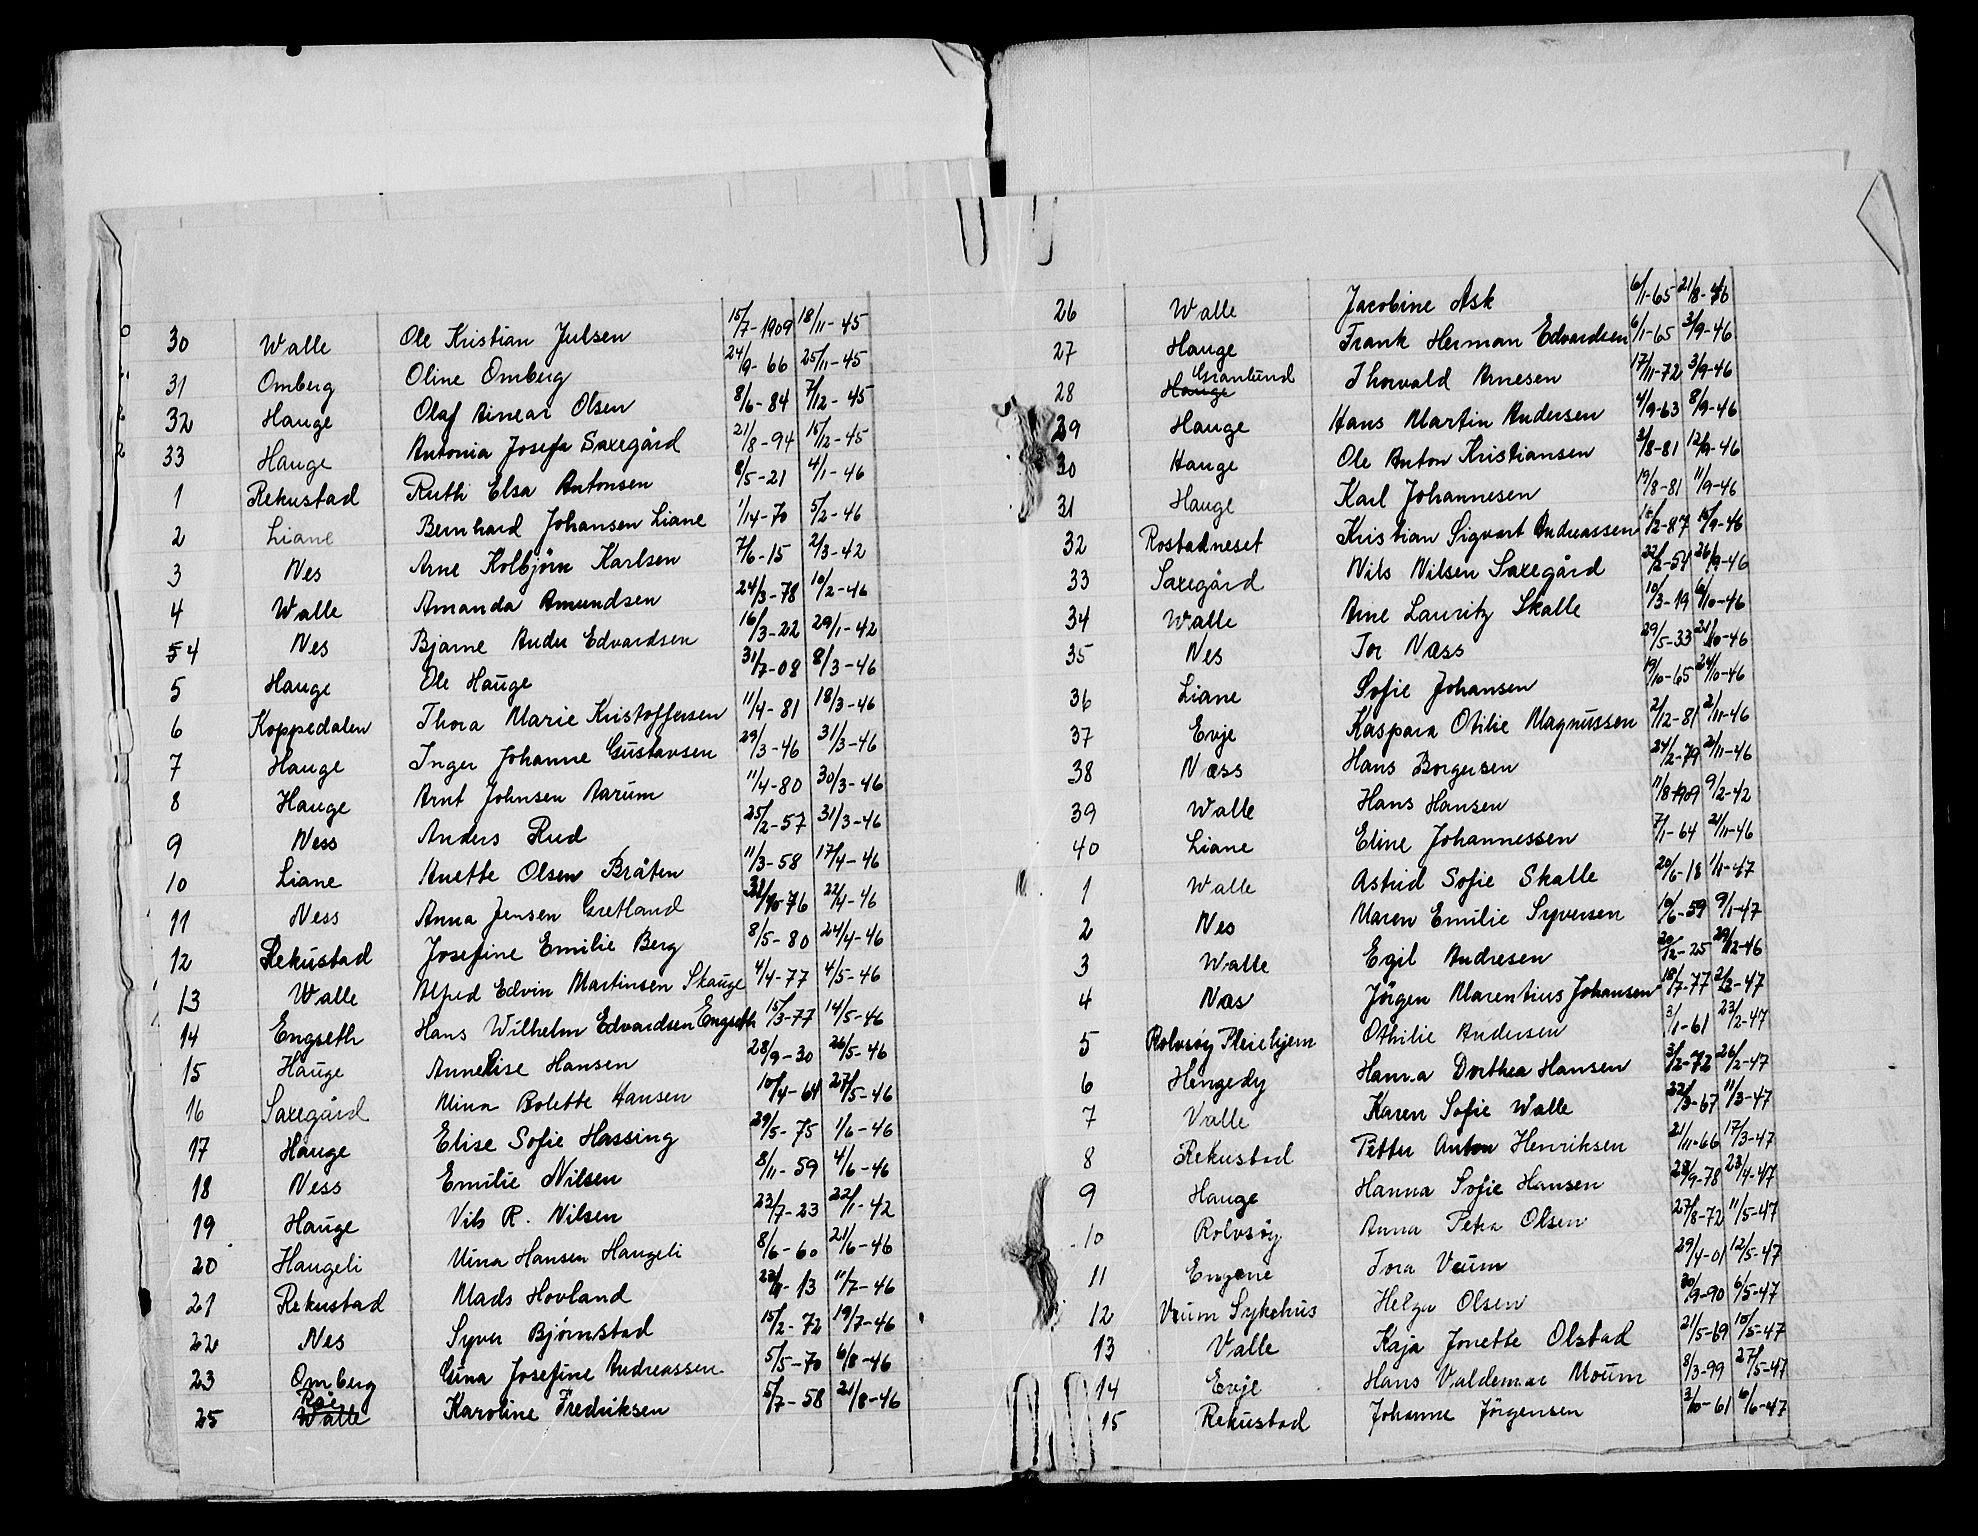 30 Walle Ole Kristian Julsen 15/7-1909 18/11-45
31 Omberg Oline Omberg 24/9-66 25/11-45
32 Hauge Olaf Einear Olsen 8/6-84 7/12-45
33 Hauge Antonia Josefa Saxegård 21/8-94 15/12-45
1 Rekustad Ruth Elsa Antonsen 8/5-21 4/1-46
2 Liane Bernhard Johansen Liane 1/14-70 5/2-46
3 Nes Arne Kolbjörn Karlsen 7/6-15 2/3-42
4 Walle Amanda Amundsen 24/3-78 10/2-46
54 Nes Bjarne Ander Edvardsen 16/3-22 29/1-42
5 Hauge Ole Hauge 31/7-08 8/3-46
6 Koppedalen Thora Marie Kristoffersen 11/4-81 18/3-46
7 Hauge Inger Johanne Gustavsen 29/3-46 31/3-46
8 Hauge Arnt Johnsen Aarum 11/4-80 30/3-46
9 Ness Anders Rud 25/2-57 31/3-46
10 Liane Anette Olsen Bråten 11/3-58 17/4-46
11 Ness Anna Jensen Gretland 31/10-76 22/4-46
12 Rekustad Josefine Emilie Berg 8/5-80 24/4-46
13 Walle Alfred Edvin Martinsen Skauge 4/4-77 4/5-46
14 Engseth Hans Wilhelm Edvardsen Engseth 15/3-77 14/5-46
15 Hauge Annelise Hansen 28/9-30 26/5-46
16 Saxegård Mina Bolette Hansen 10/4-64 27/5-46
17 Hauge Elise Sofie Hassing 29/5-75 1/6-46
18 Ness Emilie Nilsen 8/11-59 4/6-46
19 Hauge Nils R. Nilsen 23/7-23 22/1-42
20 Haugeli Mina Hansen Haugeli 8/6-60 21/6-46
21 Rekustad Mads Hovland -13 11/7-46
22 Nes Syver Bjørnstad 15/2-72 19/7-46
23 Omberg Gina Josefine Andreassen 5/5-70 6/8-46
25 Roe Walle Karoline Fredriksen 5/7-58 21/8-46
26 Walle Jacobine Ask 6/1-65 21/8-46
27 Hauge Frank Herman Edvardsen 6/1-65 3/9-46
28 Hauge Granlund Thorvald Arnesen 17/11-72 3/9-46
29 Hauge Hans Martin Andersen 4/9-63 8/9-46
30 Hauge Ole Anton Kristiansen 3/8-81 12/9-46
31 Hauge Karl Johannesen 19/8-81 11/9-46
32 Rostadneset Kristian Sigvart Andreassen 15/2-87 15/9-46
33 Saxegård Nils Nilsen Saxegård 22/2-54 26/9-46
34 Walle Arne Lauritz Skalle 10/3-19 6/10-46
35 Nes Tor Næss 29/5-33 21/10-46
36 Liane Sofie Johansen 19/10-65 24/10-46
37 Evje Kaspara Otilie Magnussen 2/12-81 2/11-46
38 Næss Hans Borgersen 24/2-79 2/11-46
39 Walle Hans Hansen 11/8-1909 9/2-42
40 Liane Eline Johannessen 7/1-64 21/11-46
1 Walle Astrid Sofie Skalle 20/6-18 1/1-47
2 Nes Maren Emilie Syversen 10/6-59 9/1-47
3 Walle Egil Andresen 20/2-25 29/12-46
4 Næs Jörgen Marentius Johansen 18/7-77 2/2-47
5 Rolvsöy Pleiehjem Othilie Andersen 3/1-61 23/2-47
6 Hengedy Hanna Dorthea Hansen 3/2-72 26/2-47
7 Valle Karen Sofie Walle 22/3-67 11/3-47
8 Rekustad Petter Anton Henriksen 21/11-66 17/3-47
9 Hauge Hanna Sofie Hansen 28/9-78 23/4-47
10 Rolvsöy Anna Petra Olsen 27/8-72 11/5-47
11 Engene Tora Veum 29/4-01 12/5-47
12 Veum Sykehus Helga Olsen 30/9-90 6/5-47
13 Valle Kaja Jonette Olstad 21/5-69 15/5-47
14 Evje Hans Valdemar Moum 8/3-99 27/5-47
15 Rekustad Johanne Jörgensen 3/10-61 6/6-47